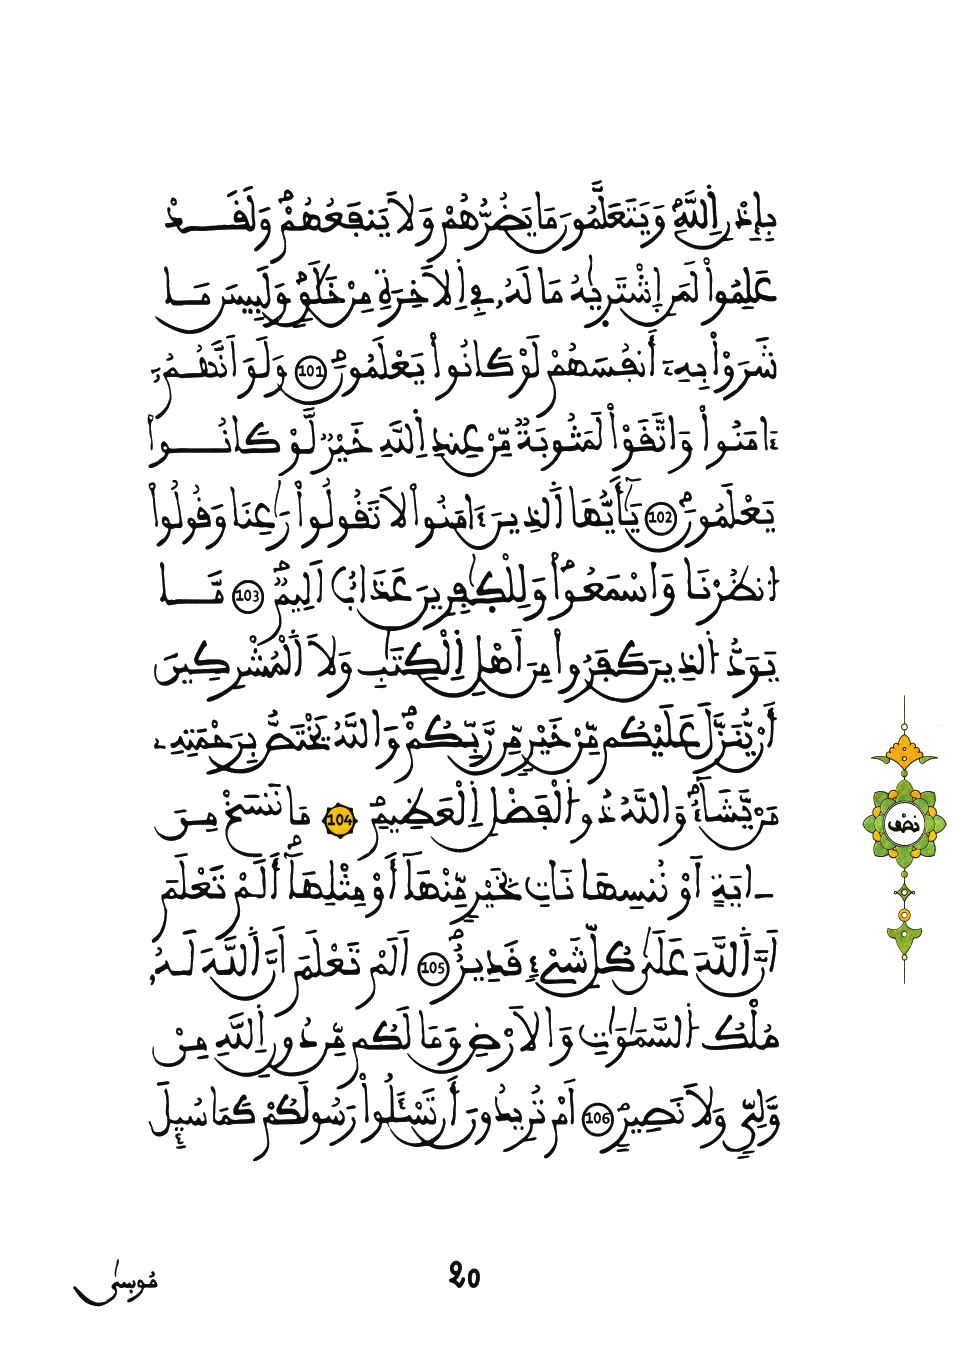 بِإِذْنِ اِ۬للَّهِۖ وَيَتَعَلَّمُونَ مَا يَضُرُّهُمْ وَلَا يَنفَعُهُمْۖ وَلَقَدْ
عَلِمُواْ لَمَنِ اِ۪شْتَرٜيٰهُ مَا لَهُۥ فِے اِ۬لَاخِرَةِ مِنْ خَلَٰقٖۖ وَلَبِيسَ مَا
شَرَوْاْ بِهِۦٓ أَنفُسَهُمْ لَوْ كَانُواْ يَعْلَمُونَۖ 101 وَلَوَ اَنَّهُمُۥٓ
ءَامَنُواْ وَاتَّقَوْاْ لَمَثُوبَةٞ مِّنْ عِندِ اِ۬للَّهِ خَيْرٞ لَّوْ كَانُواْ
يَعْلَمُونَۖ 102 يَٰٓأَيُّهَا اَ۬لذِينَ ءَامَنُواْ لَا تَقُولُواْ رَٰعِنَا وَقُولُواْ
اُ۟نظُرْنَا وَاسْمَعُواْۖ وَلِلْكٰٜفِرِينَ عَذَابٌ اَلِيمٞۖ 103 مَّا
يَوَدُّ اُ۬لذِينَ كَفَرُواْ مِنَ اَهْلِ اِ۬لْكِتَٰبِ وَلَا اَ۬لْمُشْرِكِينَ
أَنْ يُّنَزَّلَ عَلَيْكُم مِّنْ خَيْرٖ مِّن رَّبِّكُمْۖ وَاللَّهُ يَخْتَصُّ بِرَحْمَتِهِۦ
مَنْ يَّشَآءُۖ وَاللَّهُ ذُو اُ۬لْفَضْلِ اِ۬لْعَظِيمِۖ 104 مَا نَنسَخْ مِنَ
اٰيَةٍ اَوْ نُنسِهَا نَاتِ بِخَيْرٖ مِّنْهَآ أَوْ مِثْلِهَآۖ أَلَمْ تَعْلَمَ
اَنَّ اَ۬للَّهَ عَلَىٰ كُلِّ شَےْءٖ قَدِيرٌۖ 105 اَلَمْ تَعْلَمَ اَنَّ اَ۬للَّهَ لَهُۥ
مُلْكُ اُ۬لسَّمَٰوَٰتِ وَالَارْضِ وَمَا لَكُم مِّن دُونِ اِ۬للَّهِ مِنْ
وَّلِيّٖ وَلَا نَصِيرٍۖ 106 اَمْ تُرِيدُونَ أَن تَسْـَٔلُواْ رَسُولَكُمْ كَمَا سُئِلَ
نصْف
20
مُوسىٰ